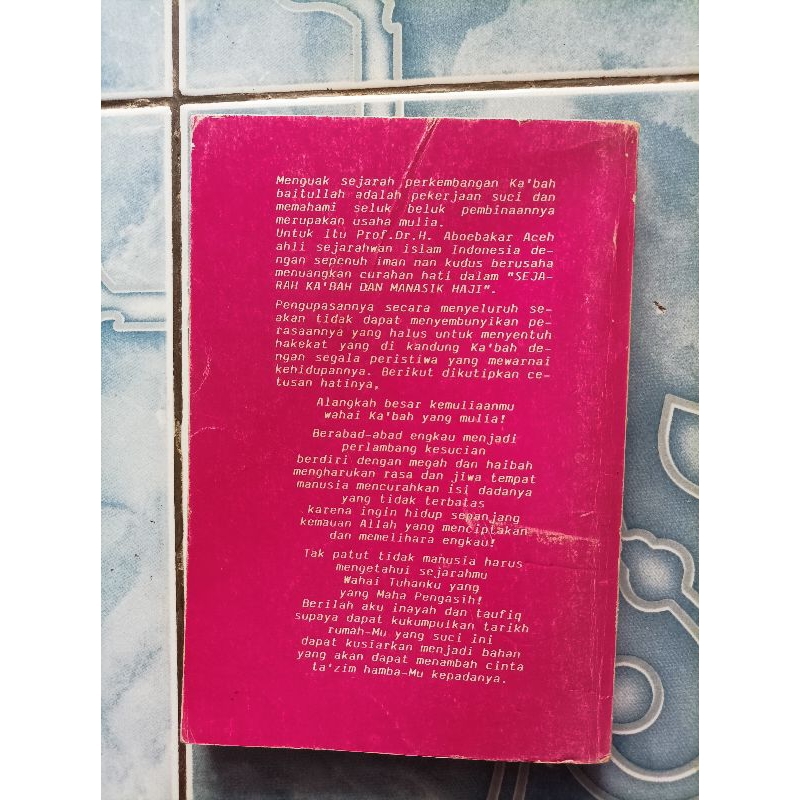 Menguak sejarah perkembangan Ka'bah
baitullah adalah pekerjaan suci dan
memahami seluk beluk pembinaannya
merupakan usaha mulia.
Untuk itu Prof.Dr.H. Aboebakar Aceh
ahli sejarahwan islam Indonesia de-
ngan sepenuh iman nan kudus berusaha
menuangkan curahan hati dalam "SEJA-
RAH KA'BAH DAN MANASIK HAJI".
Pengupasannya secara menyeluruh se-
akan tidak dapat menyembunyikan pe-
rasaannya yang halus untuk menyentuh
hakekat yang di kandung Ka'bah de-
ngan segala peristiwa yang mewarnai
kehidupannya. Berikut dikutipkan ce-
tusan hatinya.
Alangkah besar kemuliaanmu
wahai Ka'bah yang mulia!
Berabad-abad engkau menjadi
perlambang kesucian
berdiri dengan megah dan haibah
mengharukan rasa dan jiwa tempat
manusia mencurahkan isi dadanya
yang tidak terbatas
karena ingin hidup sepanjang
kemauan Allah yang menciptakan
dan memelihara engkau!
Tak patut tidak manusia harus
mengetahui sejarahmu
Wahai Tuhanku yang
yang Maha Pengasih!
Berilah aku inayah dan taufiq
supaya dapat kukumpulkan tarikh
rumah-Mu yang suci ini
dapat kusiarkan menjadi bahan
yang akan dapat menambah cinta
ta'zim hamba-Mu kepadanya.